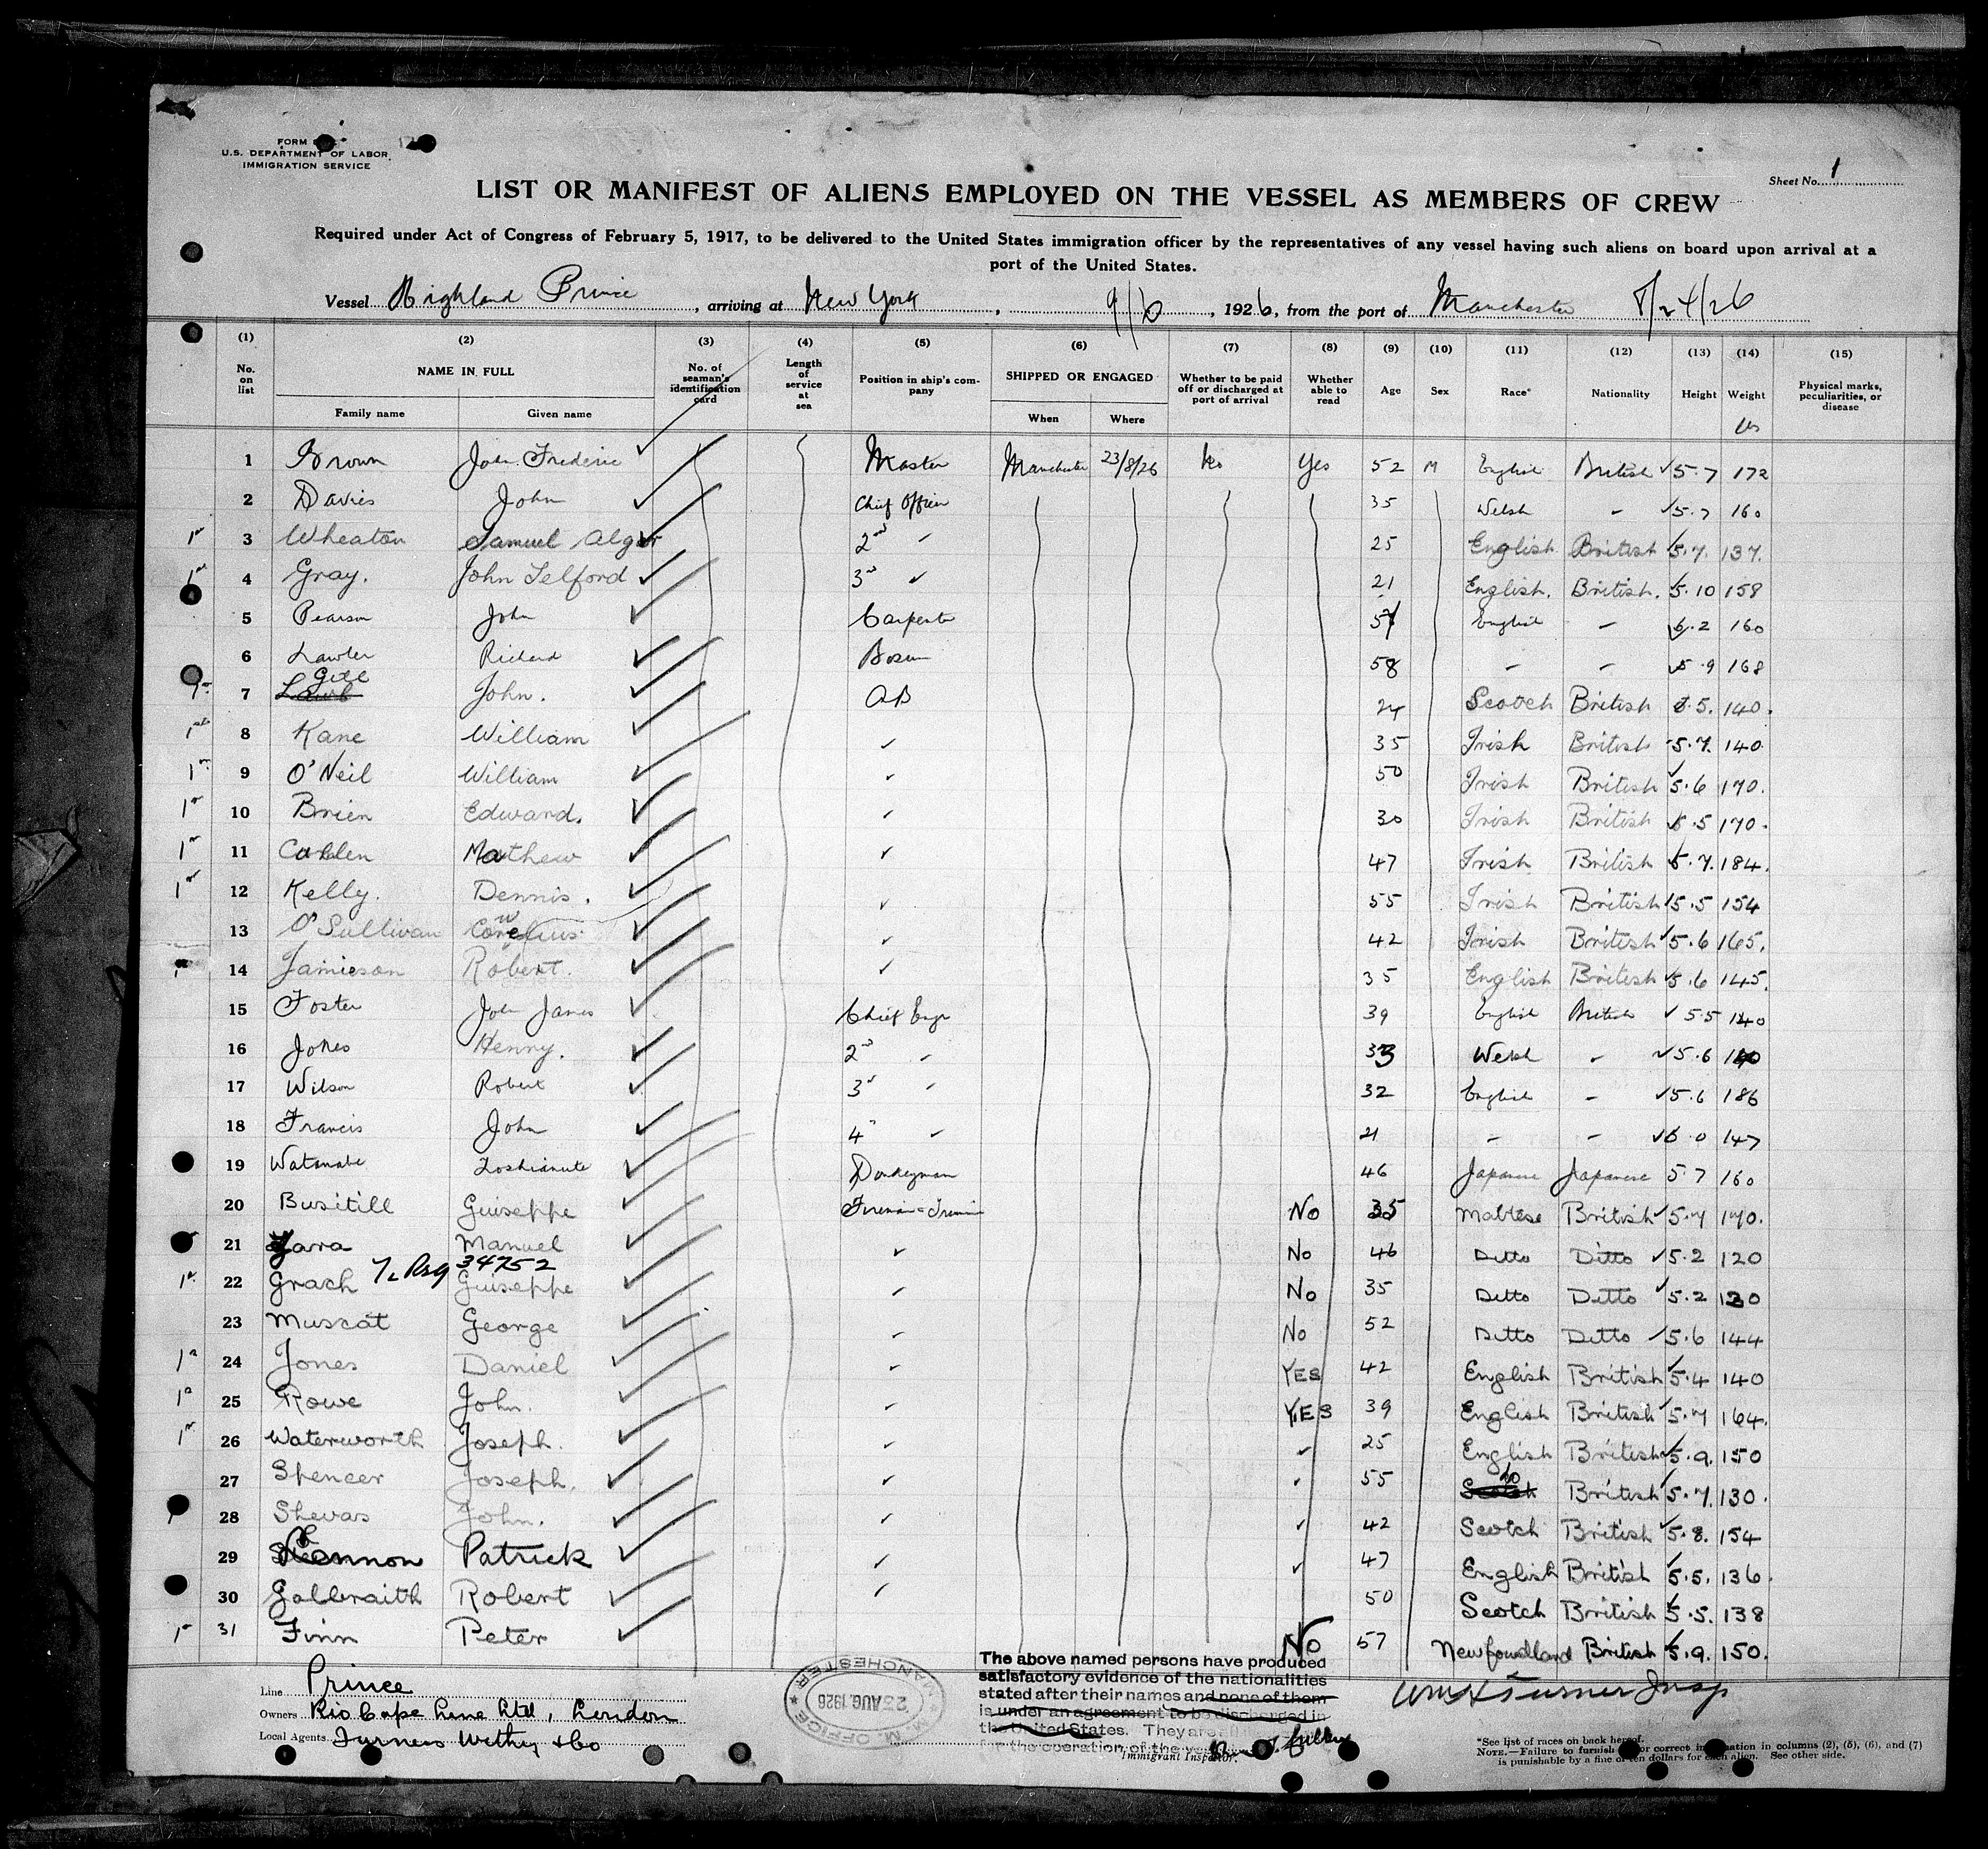 U.S. DEPARTMENT OF LABOR
IMMIGRATION SERVICE
Sheet No. 1
LIST OR MANIFEST OF ALIENS EMPLOYED ON THE VESSEL AS MEMBERS OF CREW
Required under Act of Congress of February 5, 1917, to be delivered to the United States immigration officer by the representatives of any vessel having such aliens on board upon arrival at a
port of the United States.
Vessel Highland Prince, arriving at New York, 9/6, 1926, from the port of Manchester 8/24/26
(1) (2) (3) (4) (5) (6) (7) (8) (9) (10) (11) (12) (13) (14) (15)
No. on list NAME IN FULL No. of seaman's identification card Length of service at sea Position in ship's company SHIPPED OR ENGAGED Whether to be paid off or discharged at port of arrival Whether able to read Age Sex Race* Nationality Height Weight Physical marks, peculiarities, or disease
Family name Given name When Where lbs
1 Brown John Frederic Master Manchester 23/8/26 No Yes 52 M English British 5.7 172
2 Davies John Chief Officer 35 Welsh - 5.7 160
3 Wheaton Samuel Alger 2nd " 25 English British 5.7. 137.
4 Gray. John Telford 3rd " 21 English. British. 5.10 158
5 Pearson John Carpenter English - 6.2 160
6 Lawler Richard Bosun 58 - - 5.9 168
7 John. AB 24 Scotch British 5.5. 140.
8 Kane William " 35 Irish British 5.7. 140.
9 O'Neil William " 50 Irish British 5.6 170.
10 Brien Edward. " 30 Irish British 5.5 170.
11 Mathew " 47 Irish British 5.7. 184.
12 Kelly. Dennis. " 55 Irish British 5.5 154
13 O'Sullivan " 42 Irish British 5.6 165.
14 Jamieson Robert. " 35 English British 5.6 145.
15 Foster John James Chief Engr 39 English British 5.5 140
16 Jones Henry. 2nd " 33 Welsh - 5.6
17 Wilson Robert 3rd " 32 English - 5.6 186
18 Francis John 4th " 21 - - 6.0 147
19 Watanabe Donkeyman 46 Japanese Japanese 5 7 160
20 Busitill Guiseppe Fireman-Trimmer No 35 Maltese British 5.7 170.
21 Manuel " No 46 Ditto Ditto 5.2 120
34752
22 Grach Guiseppe " No 35 Ditto Ditto 5.2 130
23 Muscat George " No 52 Ditto Ditto 5.6 144
24 Jones Daniel " YES 42 English British 5.4 140
25 Rowe John. " YES 39 English British 5.7 164.
26 Waterworth Joseph. " " 25 English British 5.9. 150
27 Spencer Joseph. " " 55 British 5.7. 130.
28 Shevas John. " " 42 Scotch British 5.8. 154
29 Patrick " " 47 English British 5.5. 136.
30 Galbraith Robert " 50 Scotch British 5.5. 138
31 Finn Peter No 57 Newfoundland British 5.9. 150.
Line Prince
Owners Rio Cape Line Ltd, London
Local Agents
M.M. OFFICE MANCHESTER 23 AUG. 1926
The above named persons have produced
satisfactory evidence of the nationalities
stated after their names and none of them
is under an agreement to be discharged in
the United States. They are
for the operation of the
Immigrant Inspector.
Wm H Turner Insp
*See list of races on back hereof.
NOTE.—Failure to furnish or correct information in columns (2), (5), (6), and (7)
is punishable by a fine of ten dollars for each alien. See other side.